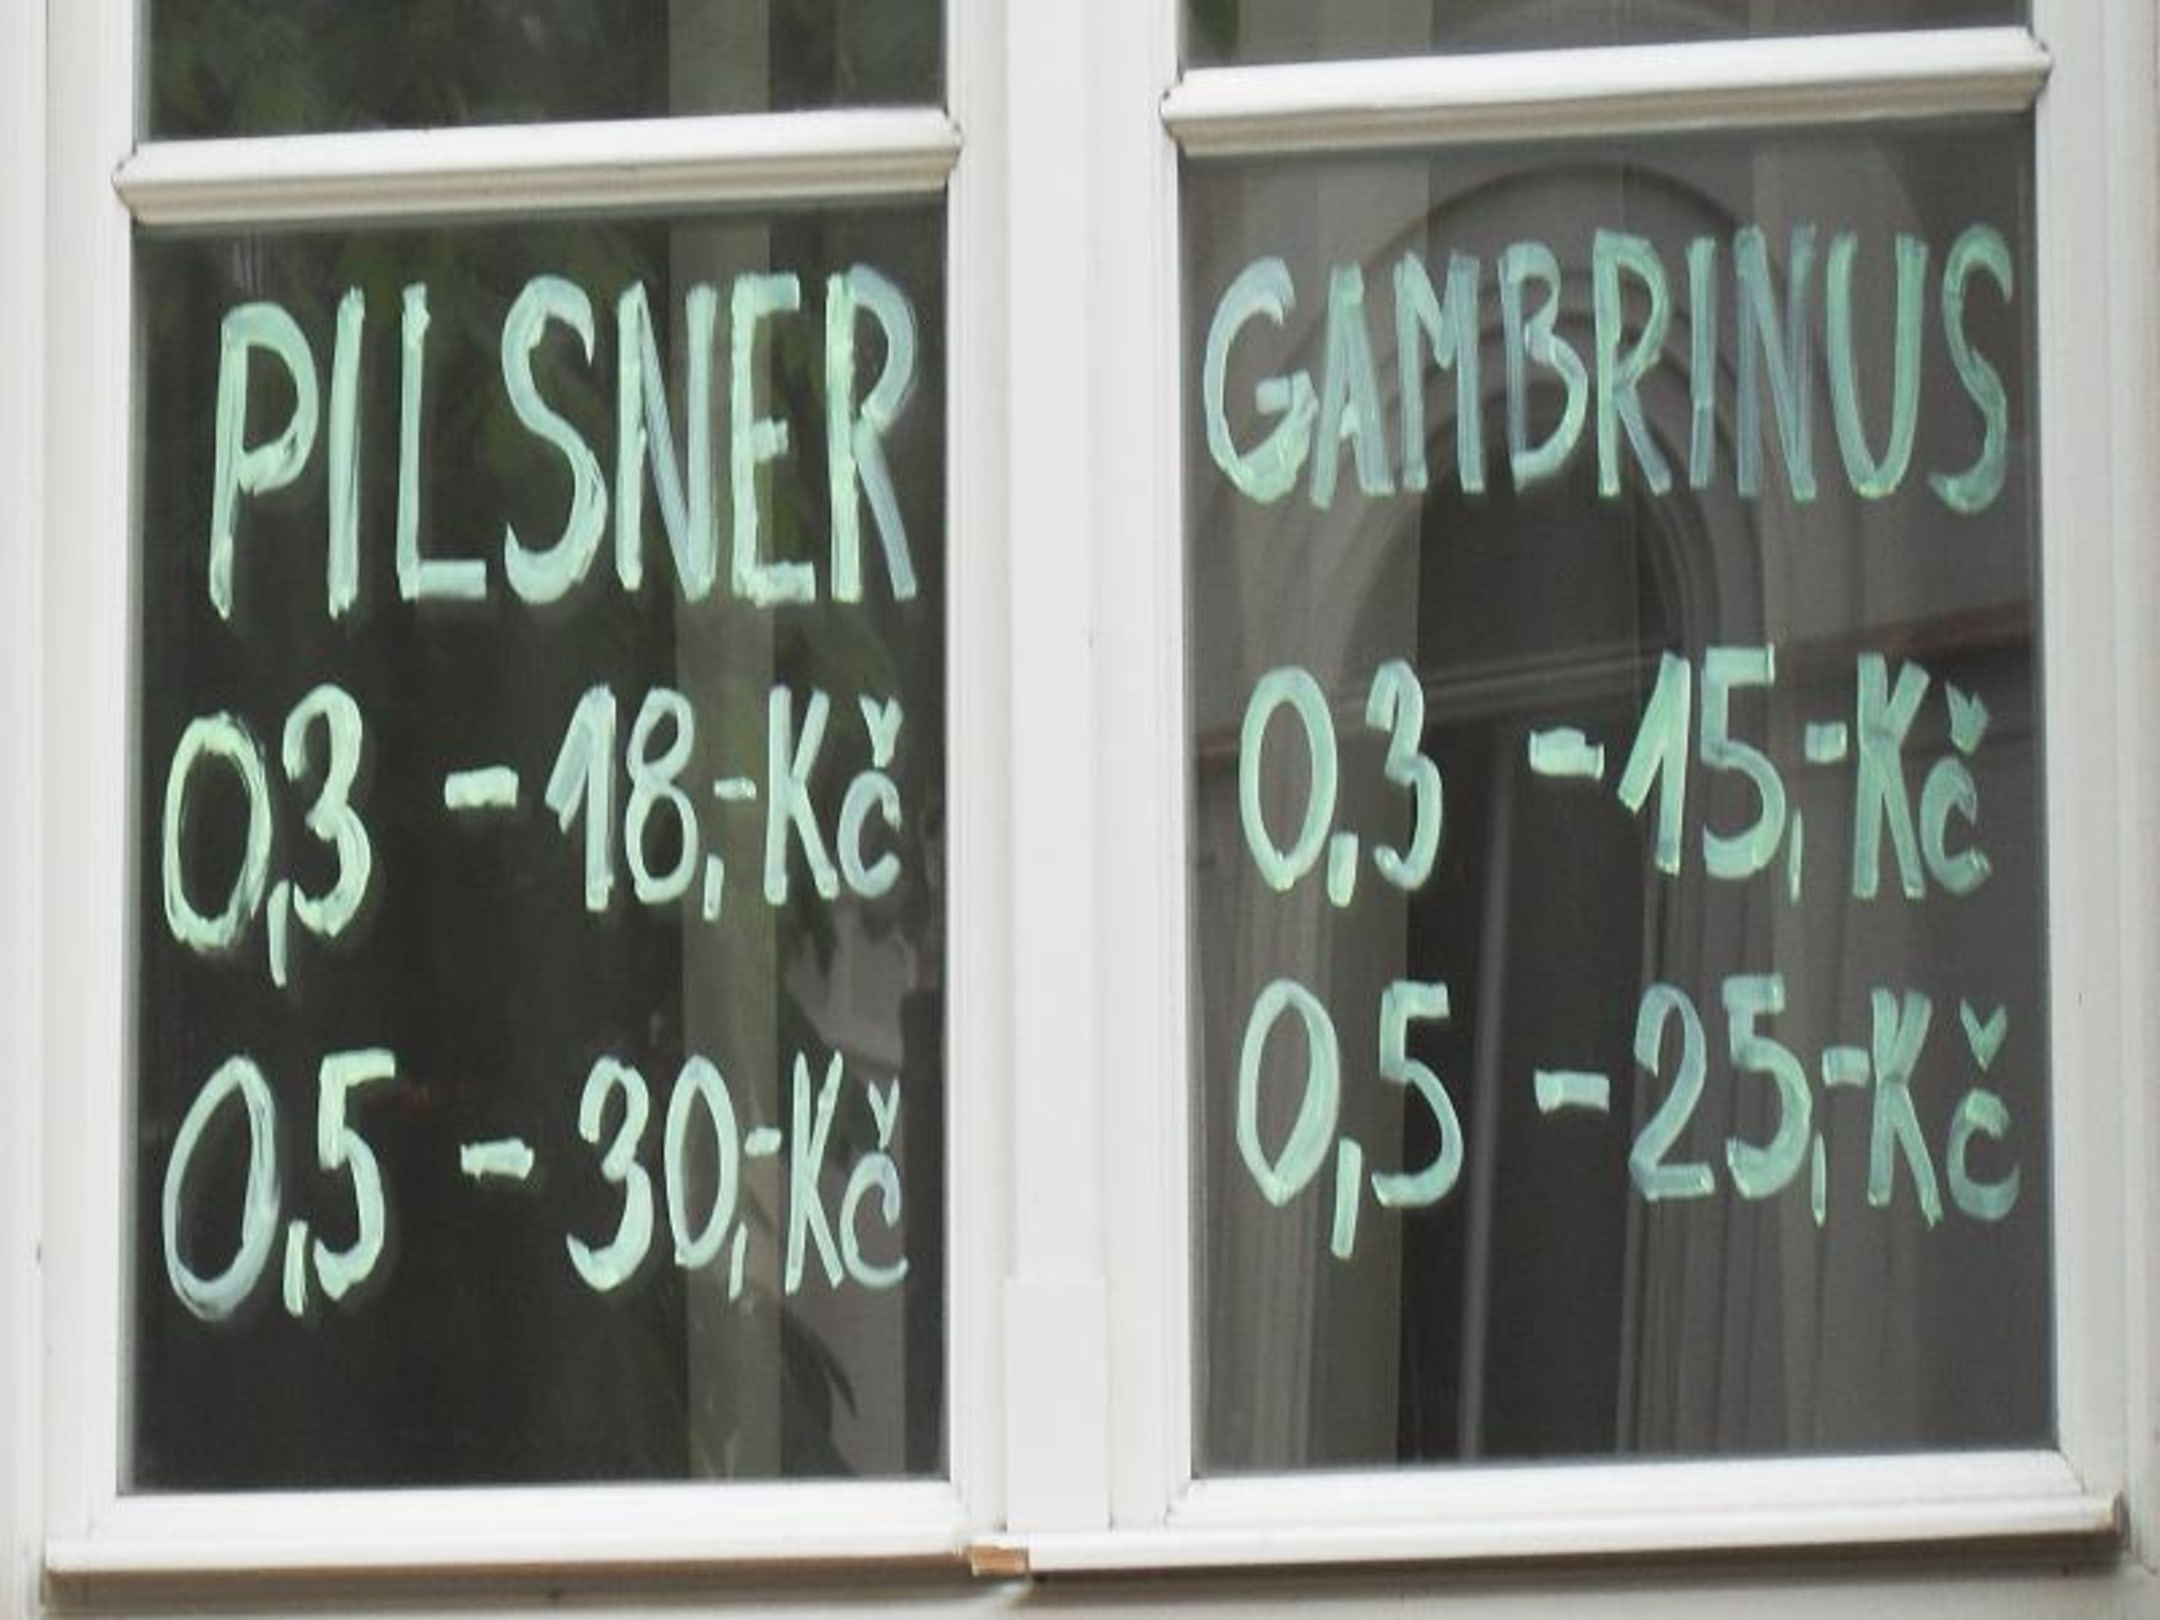 PILSNER
0,3 - 18,- Kč
0,5 - 30,- Kč
GAMBRINUS
0,3 - 15,- Kč
0,5 - 25,- Kč